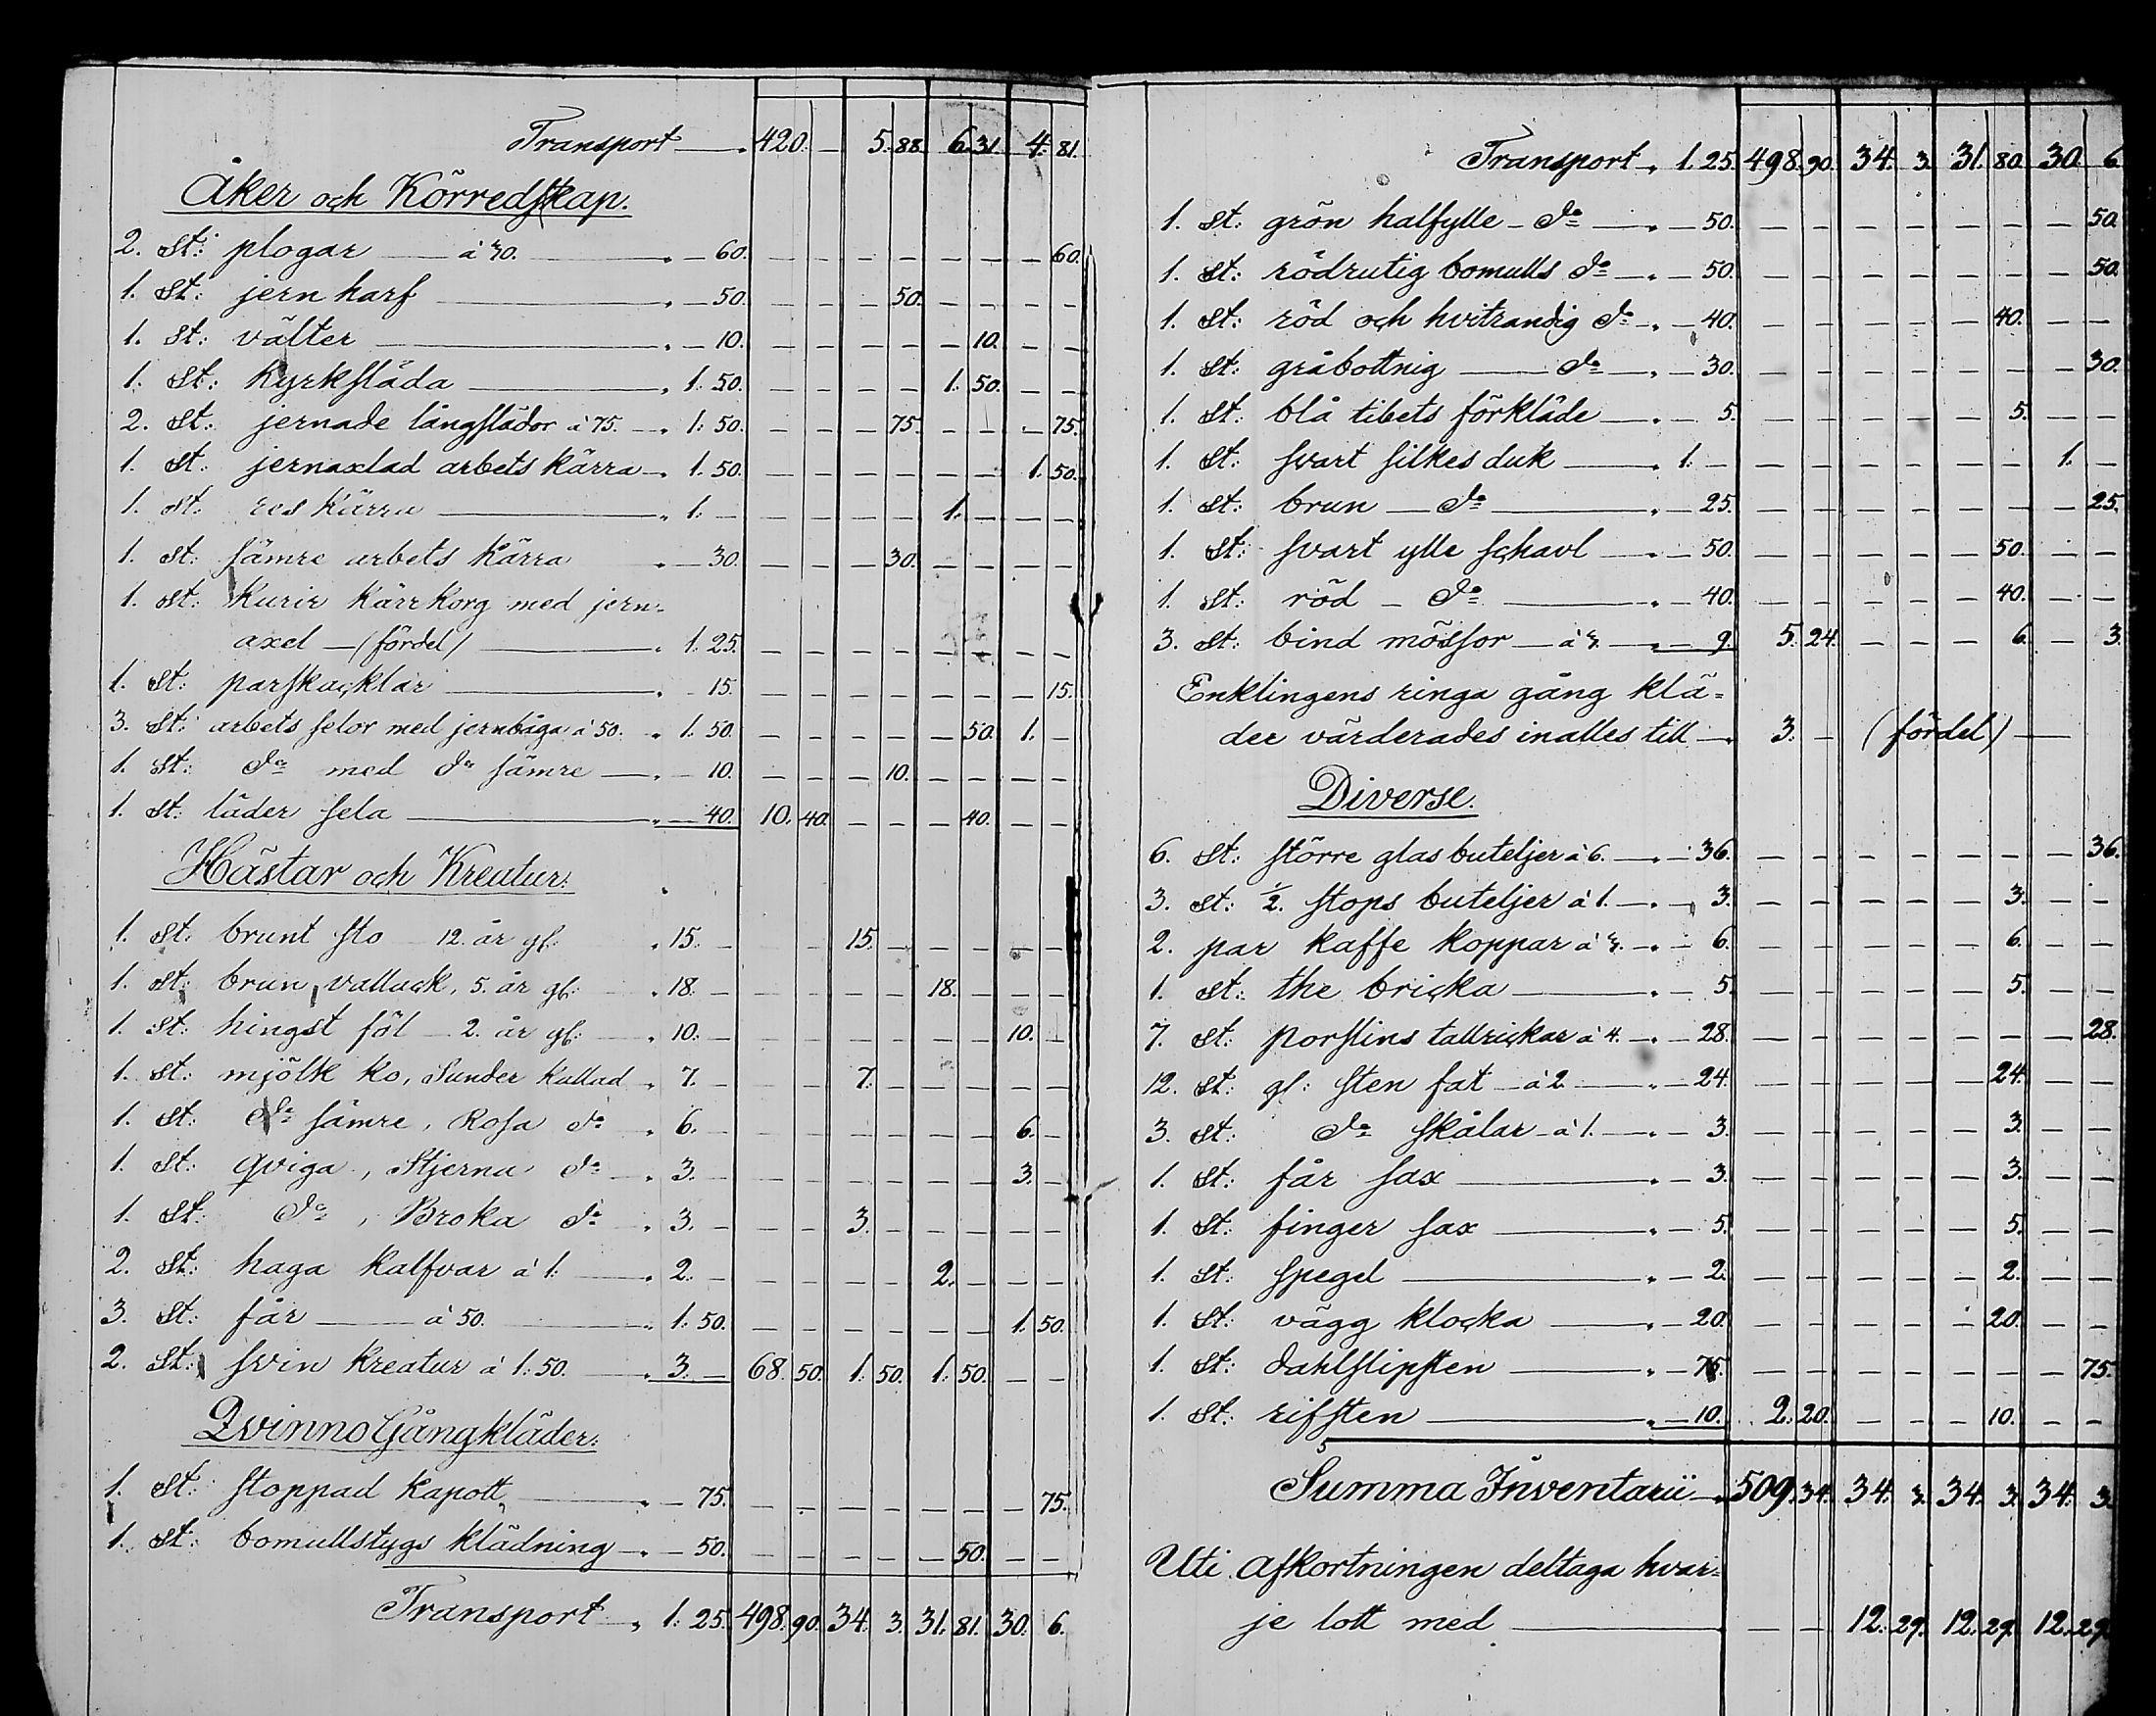 Transport 420. — 5. 88. 6. 31. 4. 81.
Åker och Körredskap.
2. St: plogar — à 30. — 60. — — — — — — — 60.
1. St: jern harf — 50. — — — 50. — — — —
1. St: välter — 10. — — — — — 10. — —
1. St: kyrksläda 1. 50. — — — — 1. 50. — —
2. St: jernade långslädor à 75. 1. 50. — — — 75. — — — 75.
1. St: jernaxlad arbets kärra 1. 50. — — — — — — 1. 50.
1. St: res kärra 1. — — — — — 1. — — —
1. St: sämre arbets kärra — 30. — — — 30. — — — —
1. St: Kurir kärrkorg med jern=
axel — (fördel) 1. 25. — — — — — — — —
1. St: parskacklar — 15. — — — — — — — 15.
3. St: arbets selor med jernbåga à 50. 1. 50. — — — — — 50. 1. —
1. St: Do med Do sämre — 10. — — — 10. — — — —
1. St: läder sela — 40. 10. 40. — — — 40. — —
Hästar och Kreatur:
1. St: brunt sto 12. år gl: 15. — — — 15. — — — — —
1. St: brun vallack, 5. år gl: 18. — — — — — 18. — — —
1. St: hingst föl — 2. år gl: 10. — — — — — — — 10. —
1. St: mjölk ko, Sunder kallad 7. — — — 7. — — — — —
1. St: Do sämre, Rosa Do 6. — — — — — — — 6. —
1. St: Qviga, Stjerna Do 3. — — — — — — — 3. —
1. St: Do, Broka Do 3. — — — 3. — — — — —
2. St: haga kalfvar à 1: 2. — — — — — 2. — — —
3. St: får — à 50. 1. 50. — — — — — — 1. 50.
2. St: svin kreatur à 1: 50. 3. — 68. 50. 1. 50. 1. 50. — —
QvinnoGångkläder:
1. St: stoppad kapott — 75. — — — — — — — 75.
1. St: bomullstygs klädning — 50. — — — — — 50. — —
Transport 1. 25. 498. 90. 34. 3. 31. 81. 30. 6.
Transport 1. 25. 498. 90. 34. 3. 31. 80. 30. 6.
1. St: grön halfylle — Do — 50. — — — — — — — 50.
1. St: rödrutig bomulls Do — 50. — — — — — — — 50.
1. St: röd och hvitrandig Do — 40. — — — — — 40. — —
1. St: gråbottnig — Do — 30. — — — — — — — 30.
1. St: blå tibets förkläde — 5. — — — — — 5. — —
1. St: svart silkes duk 1. — — — — — — — 1. —
1. St: brun — Do — 25. — — — — — — — 25.
1. St: svart ylle schavl — 50. — — — — — 50. — —
1. St: röd — Do — 40. — — — — — 40. — —
3. St: bind mössor — à 3. — 9. 5. 24. — — — 6. — 3.
Enklingens ringa gång klä=
der värderades inalles till 3. — (fördel) —
Diverse.
6. St: större glas buteljer à 6. — 36. — — — — — — — 36.
3. St: 1/2. stops buteljer à 1. — 3. — — — — — 3. — —
2. par kaffe koppar à 3. — 6. — — — — — 6. — —
1. St: the bricka — 5. — — — — — 5. — —
7. St: porslins tallrickar à 4. — 28. — — — — — — — 28.
12. St: gl: sten fat — à 2 — 24. — — — — — 24. — —
3. St: Do skålar — à 1. — 3. — — — — — 3. — —
1. St: får sax — 3. — — — — — 3. — —
1. St: finger sax — 5. — — — — — 5. — —
1. St: spegel — 2. — — — — — 2. — —
1. St: vägg klocka — 20. — — — — — 20. — —
1. St: dahlslipsten — 75. — — — — — — — 75.
1. St: rifsten — 10. 2. 20. — — — 10. — —
Summa Inventarii 509. 34. 34. 3. 34. 3. 34. 3.
Uti afkortningen deltaga hvar=
je lott med — — 12. 29. 12. 29. 12. 29.